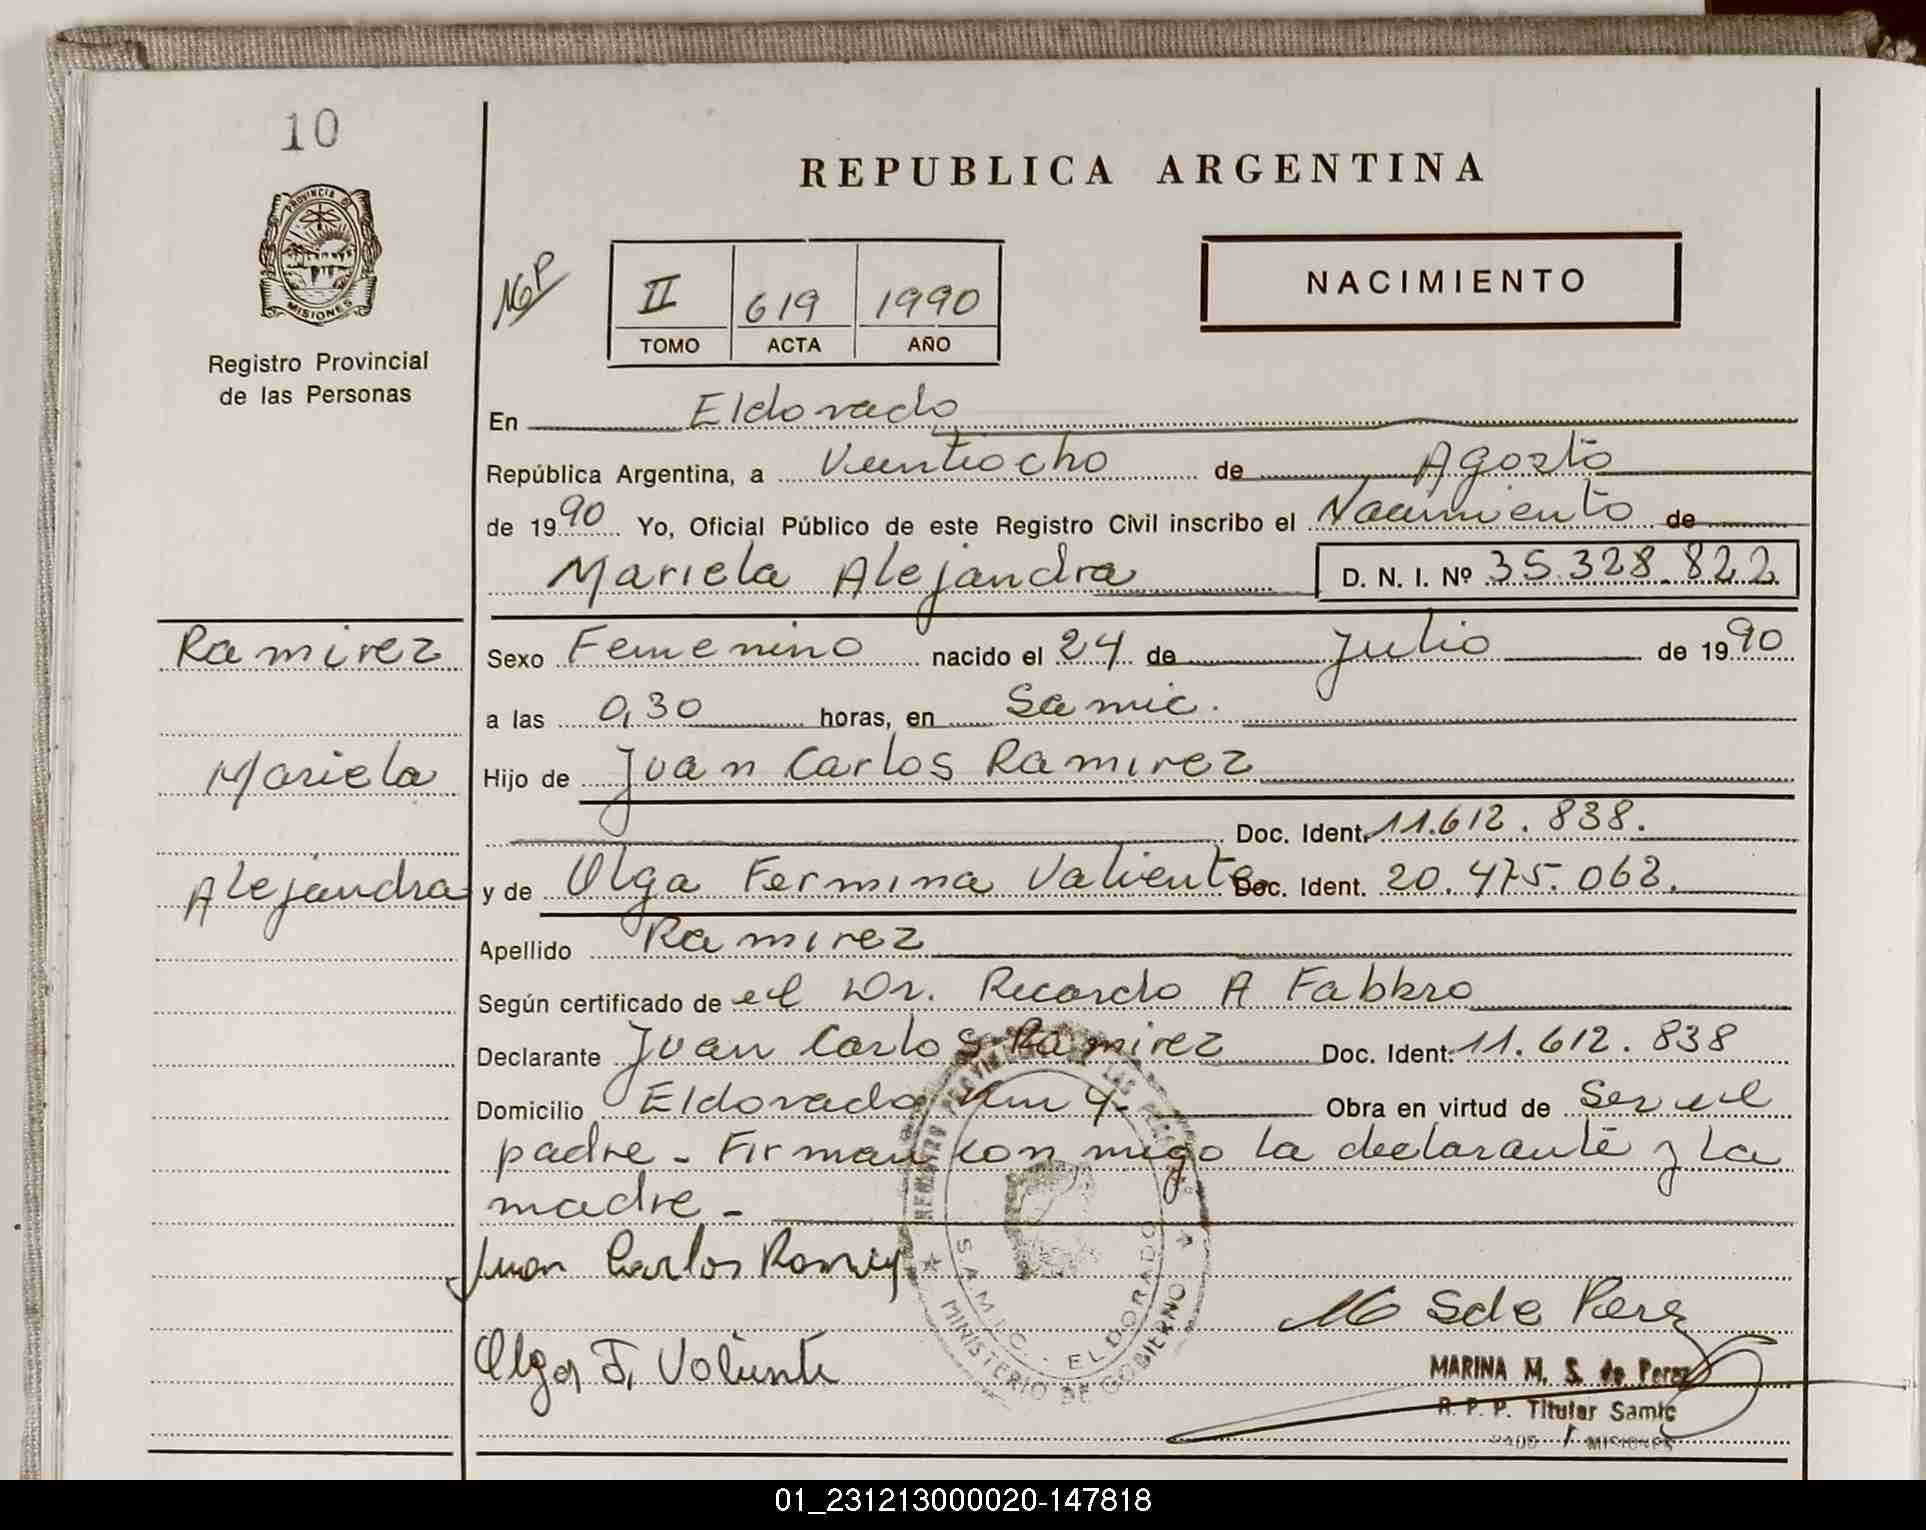 10
PROVINCIA DE
MISIONES
Registro Provincial
de las Personas
REPUBLICA ARGENTINA
NACIMIENTO
II 619 1990
TOMO ACTA AÑO
En Eldorado
República Argentina, a Veintiocho de Agosto
de 1990 Yo, Oficial Público de este Registro Civil inscribo el Nacimiento de
Mariela Alejandra D. N. I. Nº 35.328.822
Ramirez
Sexo Femenino nacido el 24 de Julio de 1990
a las 0,30 horas, en Samic.
Mariela
Hijo de Juan Carlos Ramirez
Doc. Ident. 11.612.838.
Alejandra
y de Olga Fermina Valiente Doc. Ident. 20.475.063.
Apellido Ramirez
Según certificado de el Dr. Ricardo A Fabbro
Declarante Juan Carlos Ramirez Doc. Ident. 11.612.838
Domicilio Eldorado Km 4. Obra en virtud de Ser el
padre - Firman con migo la declarante y la
madre -
Juan Carlos Ramirez
Olga F. Valiente
S.A.M.I.C. - ELDORADO
MINISTERIO DE GOBIERNO
M S de Perez
MARINA M. S. de Perez
R. P. P. Titular Samic
MISIONES
01_231213000020-147818